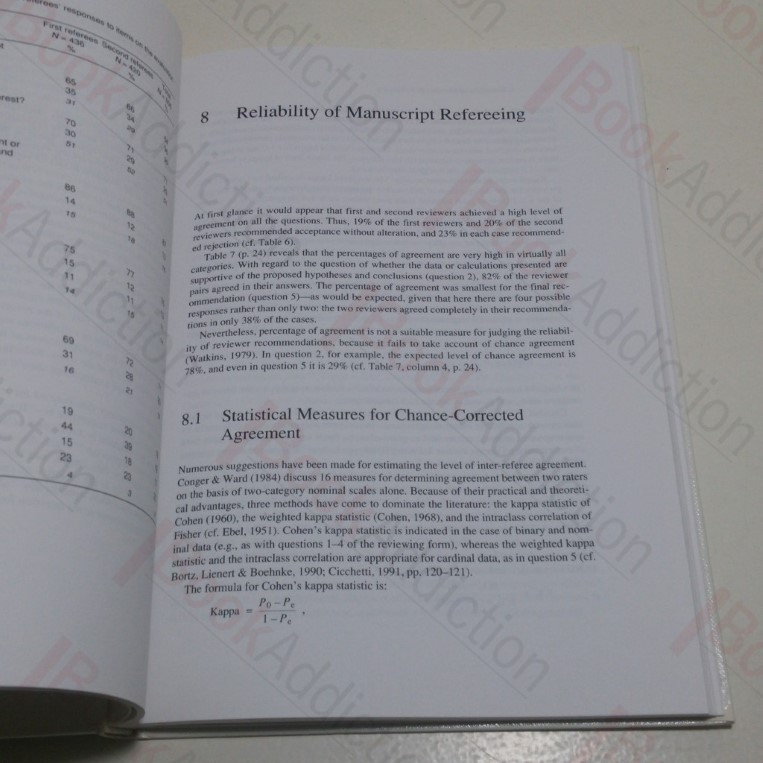 responses to items on the
First referees Second referees
N = 436
%
65
35
31
rest?
70
30
51
nt or
nd
86
14
15
75
15
11
14
69
31
16
19
44
15
23
4
66
34
29
71
29
52
88
12
18
77
12
11
72
28
27
20
39
18
23
3
8 Reliability of Manuscript Refereeing
At first glance it would appear that first and second reviewers achieved a high level of
agreement on all the questions. Thus, 19% of the first reviewers and 20% of the second
reviewers recommended acceptance without alteration, and 23% in each case recommend-
ed rejection (cf. Table 6).
Table 7 (p. 24) reveals that the percentages of agreement are very high in virtually all
categories. With regard to the question of whether the data or calculations presented are
supportive of the proposed hypotheses and conclusions (question 2), 82% of the reviewer
pairs agreed in their answers. The percentage of agreement was smallest for the final rec-
ommendation (question 5)—as would be expected, given that here there are four possible
responses rather than only two: the two reviewers agreed completely in their recommenda-
tions in only 38% of the cases.
Nevertheless, percentage of agreement is not a suitable measure for judging the reliabil-
ity of reviewer recommendations, because it fails to take account of chance agreement
(Watkins, 1979). In question 2, for example, the expected level of chance agreement is
78%, and even in question 5 it is 29% (cf. Table 7, column 4, p. 24).
8.1 Statistical Measures for Chance-Corrected
Agreement
Numerous suggestions have been made for estimating the level of inter-referee agreement.
Conger & Ward (1984) discuss 16 measures for determining agreement between two raters
on the basis of two-category nominal scales alone. Because of their practical and theoreti-
cal advantages, three methods have come to dominate the literature: the kappa statistic of
Cohen (1960), the weighted kappa statistic (Cohen, 1968), and the intraclass correlation of
Fisher (cf. Ebel, 1951). Cohen's kappa statistic is indicated in the case of binary and nom-
inal data (e.g., as with questions 1–4 of the reviewing form), whereas the weighted kappa
statistic and the intraclass correlation are appropriate for cardinal data, as in question 5 (cf.
Bortz, Lienert & Boehnke, 1990; Cicchetti, 1991, pp. 120–121).
The formula for Cohen's kappa statistic is:
Kappa = (P0 – Pe) / (1 – Pe) ,
BookAddiction